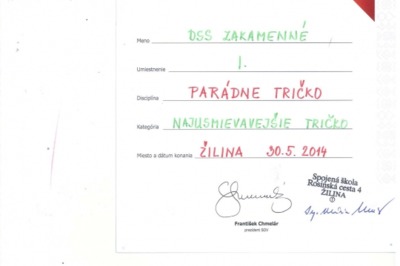 Meno DSS ZAKAMENNÉ
Umiestnenie 1.
Disciplína PARÁDNE TRIČKO
Kategória NAJUSMIEVAVEJŠIE TRIČKO
Miesto a dátum konania ŽILINA 30.5.2014
Spojená škola
Rosinská cesta 4
ŽILINA
František Chmelár
prezident ŠOV